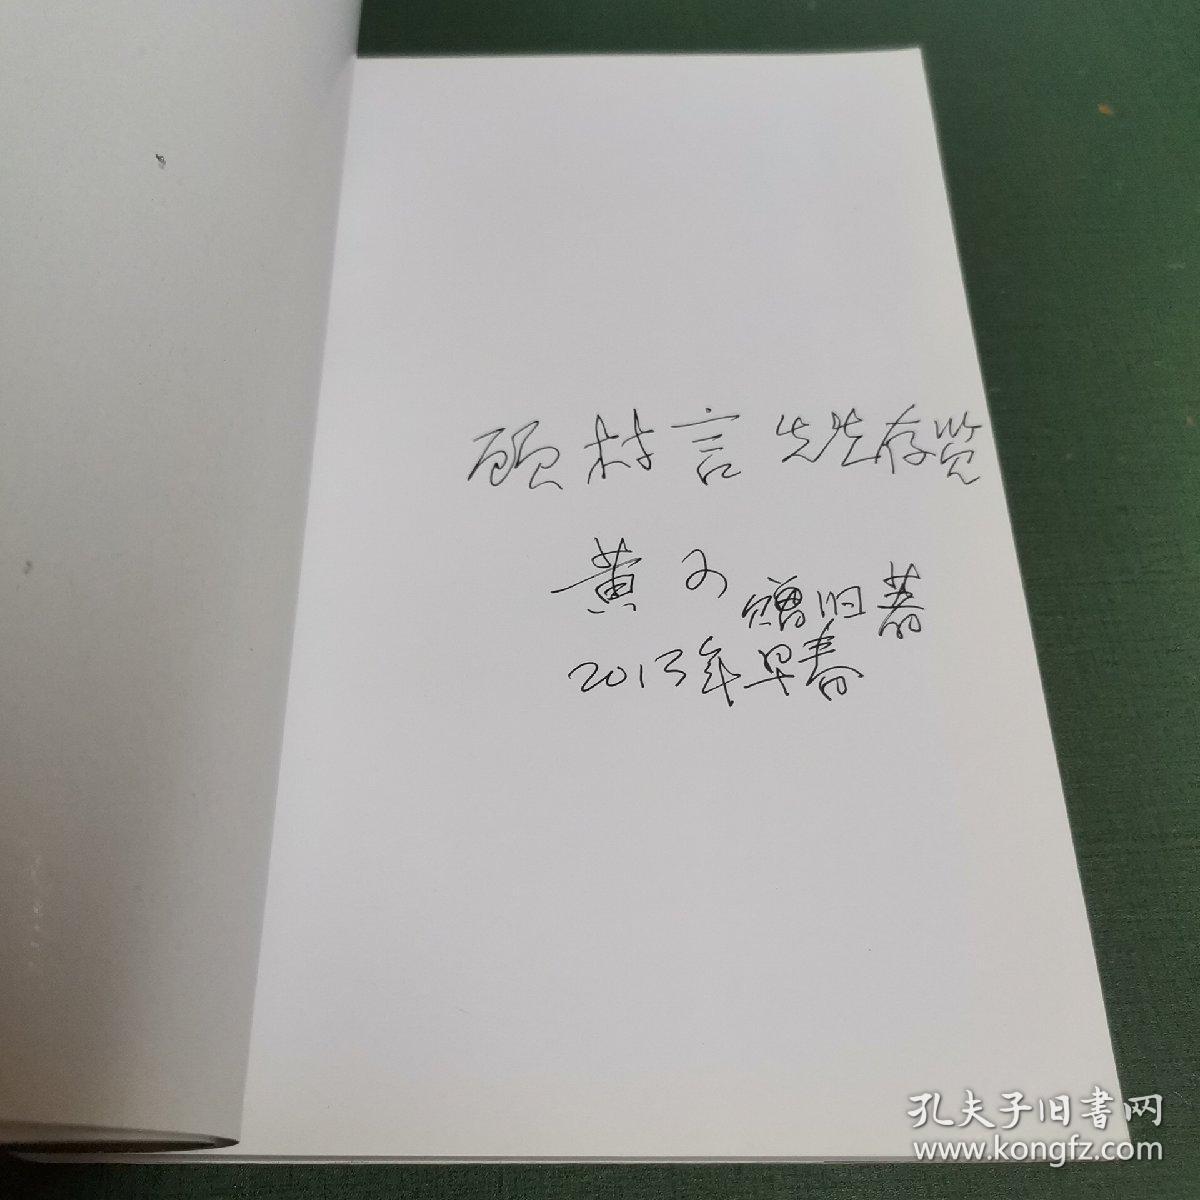 顾村言先生存览
黄 赠旧著
2013年早春
孔夫子旧书网
www.kongfz.com